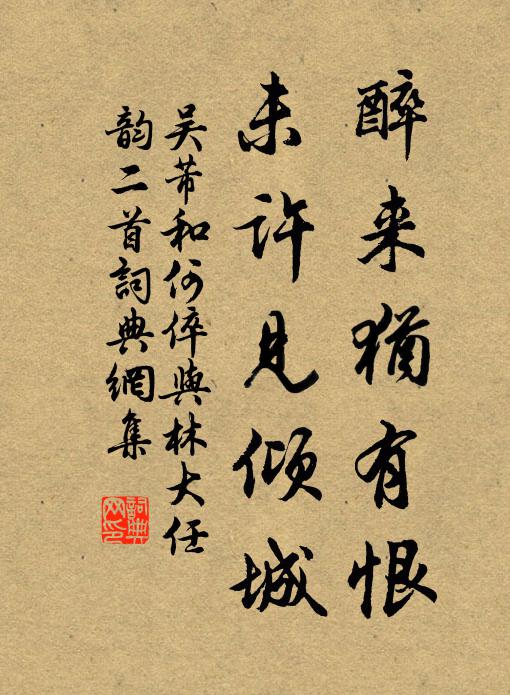 醉来猶有恨
未許見傾城
吴芾和何倅與林大任
韵二首詞典網集
詞典网印